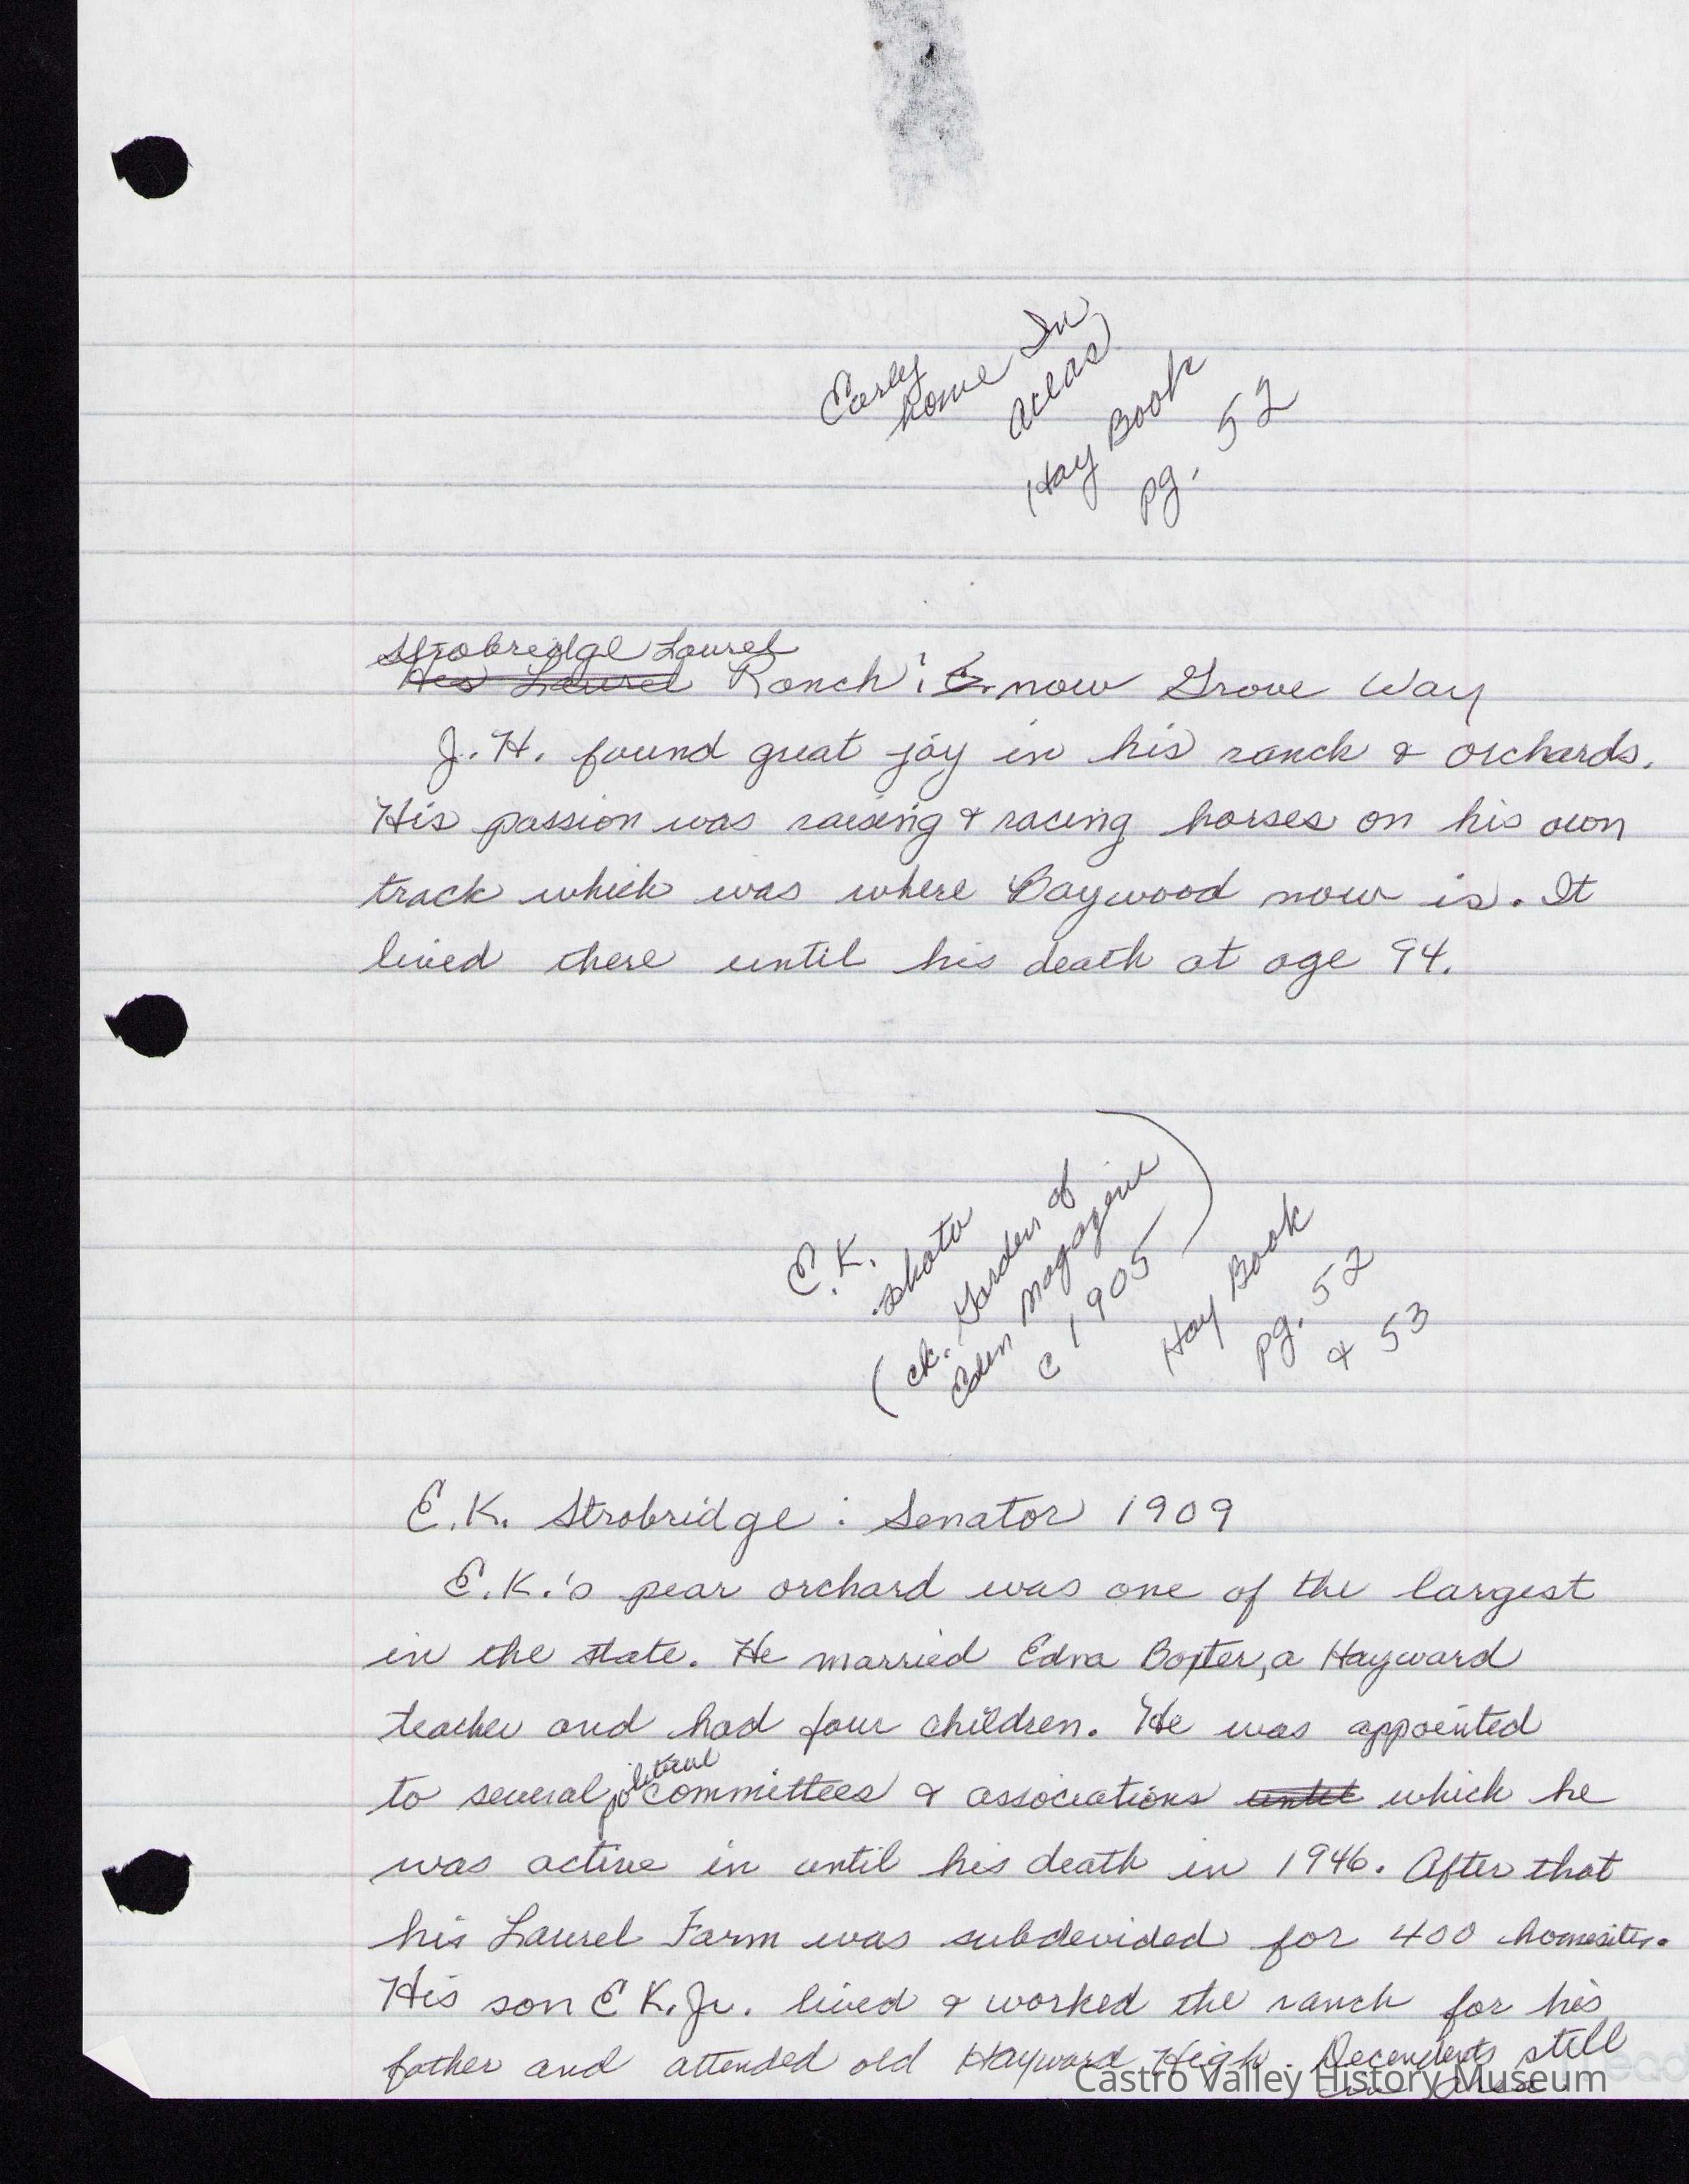 Early
home In
area)
Hay Book
pg. 52
Strobridge Laurel
His Laurel Ranch: now Grove Way
J.H. found great joy in his ranch & orchards.
His passion was raising & racing horses on his own
track which was where Baywood now is. It
lived there until his death at age 94.
E.K.
photo
(ck. Garden of
Eden Magazine
c 1905)
Hay Book
pg. 52
& 53
E.K. Strobridge: Senator 1909
E.K.'s pear orchard was one of the largest
in the state. He married Edna Baxter, a Hayward
teacher and had four children. He was appointed
to several political committees & associations until which he
was active in until his death in 1946. After that
his Laurel Farm was subdevided for 400 homesites.
His son E K. Jr. lived & worked the ranch for his
father and attended old Hayward High. Decendents still
in area.
Castro Valley History Museum